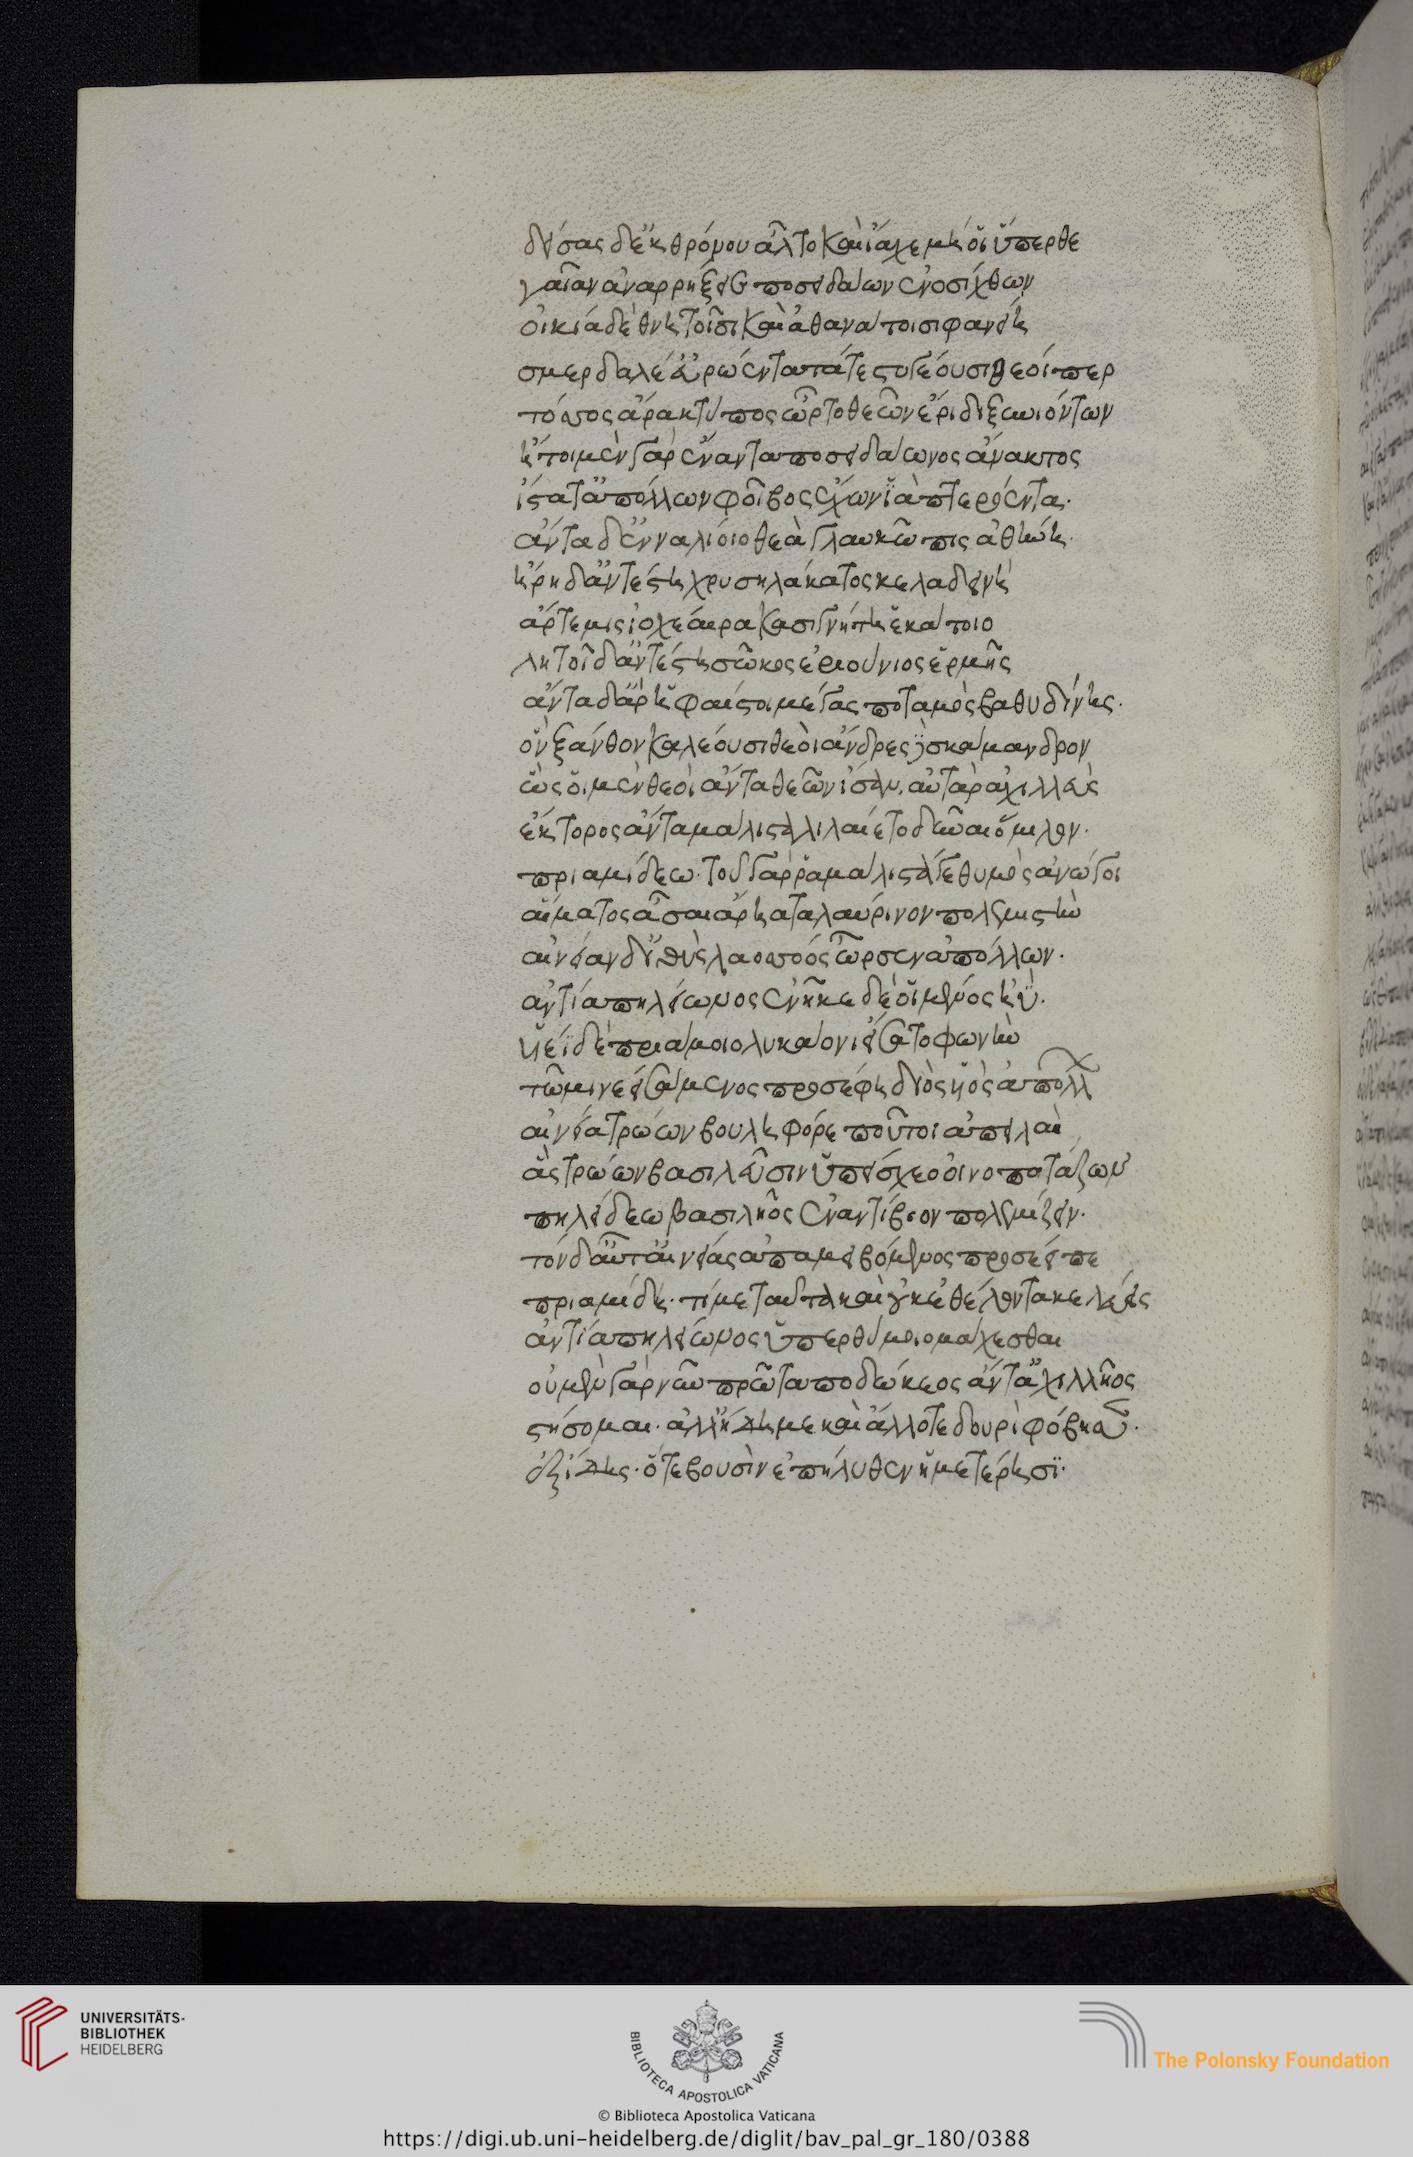 δείσας δ' ἐκ θρόνου ἆλτο καὶ ἴαχε μή οἱ ὕπερθε
γαῖαν ἀναρρήξειε ποσειδάων ἐνοσίχθων
οἰκία δὲ θνητοῖσι καὶ ἀθανάτοισι φανείη
σμερδαλέ' εὐρώεντα τάτε στυγέουσι θεοί περ
τόσσος ἄρα κτύπος ὦρτο θεῶν ἔριδι ξυνιόντων
ἤτοι μὲν γὰρ ἔναντα ποσειδάωνος ἄνακτος
ἵστατ' ἀπόλλων φοῖβος ἔχων ἰὰ πτερόεντα·
ἄντα δ' ἐνυαλίοιο θεὰ γλαυκῶπις ἀθήνη·
ἥρη δ' ἀντέστη χρυσηλάκατος κελαδεινὴ
ἄρτεμις ἰοχέαιρα κασιγνήτη ἑκάτοιο
λητοῖ δ' ἀντέστη σῶκος ἐριούνιος ἑρμῆς
ἄντα δ' ἄρ' ἡφαίστοιο μέγας ποταμὸς βαθυδίνης·
ὃν ξάνθον καλέουσι θεοὶ ἄνδρες δὲ σκάμανδρον
ὣς οἱ μὲν θεοὶ ἄντα θεῶν ἴσαν. αὐτὰρ ἀχιλλεὺς
ἕκτορος ἄντα μάλιστα λιλαίετο δῦναι ὅμιλον·
πριαμίδεω· τοῦ γὰρ ῥα μάλιστά γε θυμὸς ἀνώγοι
αἵματος ἆσαι ἄρηα ταλαύρινον πολεμιστὴν
αἰνείαν δ' ἰθὺς λαοσσόος ὦρσεν ἀπόλλων·
ἀντία πηλείωνος ἐνῆκε δέ οἱ μένος ἠΰ·
υἱέϊ δὲ πριάμοιο λυκάονι εἴσατο φωνὴν
τῷ μιν ἐεισάμενος προσέφη διὸς υἱὸς ἀπόλλ
αἰνεία τρώων βουληφόρε ποῦ τοι ἀπειλαὶ
ἃς τρώων βασιλεῦσιν ὑπείσχεο οἰνοποτάζων
πηλείδεω βασιλῆος ἐναντίβιον πολεμίζειν·
τὸν δ' αὖτ' αἰνείας ἀπαμειβόμενος προσέειπε
πριαμίδη· τί με ταῦτα καὶ οὐκ ἐθέλοντα κελεύεις
ἀντία πηλείωνος ὑπερθύμοιο μάχεσθαι
οὐ μὲν γὰρ νῦν πρῶτα ποδώκεος ἄντ' ἀχιλλῆος
στήσομαι· ἀλλ' ἤδη με καὶ ἄλλοτε δουρὶ φόβησεν·
ἐξ ἴδης· ὅτε βουσὶν ἐπήλυθεν ἡμετέρησϊ·
UNIVERSITÄTS-
BIBLIOTHEK
HEIDELBERG
BIBLIOTECA APOSTOLICA VATICANA
The Polonsky Foundation
© Biblioteca Apostolica Vaticana
https://digi.ub.uni-heidelberg.de/diglit/bav_pal_gr_180/0388